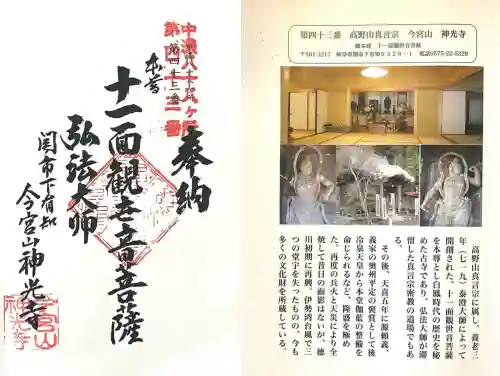 奉納
中濃八十八ヶ所
第四十三番
本尊
十一面観世音菩薩
弘法大師
関市下有知
今宮山神光寺
今宮山
神光寺
第四十三番 高野山真言宗 今宮山 神光寺
御本尊 十一面観世音菩薩
〒501-3217 岐阜県関市下有知6329-1 電話0575-22-5339
高野山真言宗に属し、養老三
年(七一九)泰澄大師によって
開創された。十一面観世音菩薩
を本尊とし白鳳時代の歴史を秘
めた古寺であり、弘法大師が滞
留した真言宗密教の道場でもあ
る。
その後、天喜五年に源頼義、
義家の奥州平定の褒賞として後
冷泉天皇から本堂伽藍の整備を
命じられるなど、隆盛を極め
た。再度の兵火と天災により全
焼して昔日の面影はないが、徳
川初期に再興。伊勢湾台風で三
つの堂宇を失ったものの、今も
多くの文化財を所蔵している。